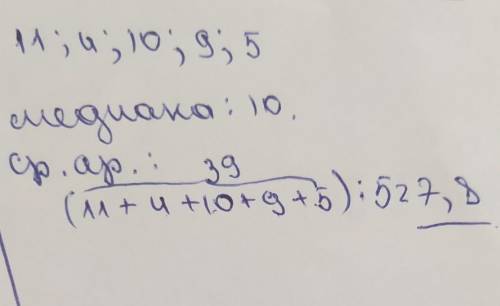 11; 4; 10; 9; 5
медиана: 10.
ср. ар.: 39
(11 + 4 + 10 + 9 + 5) : 5 = 7,8